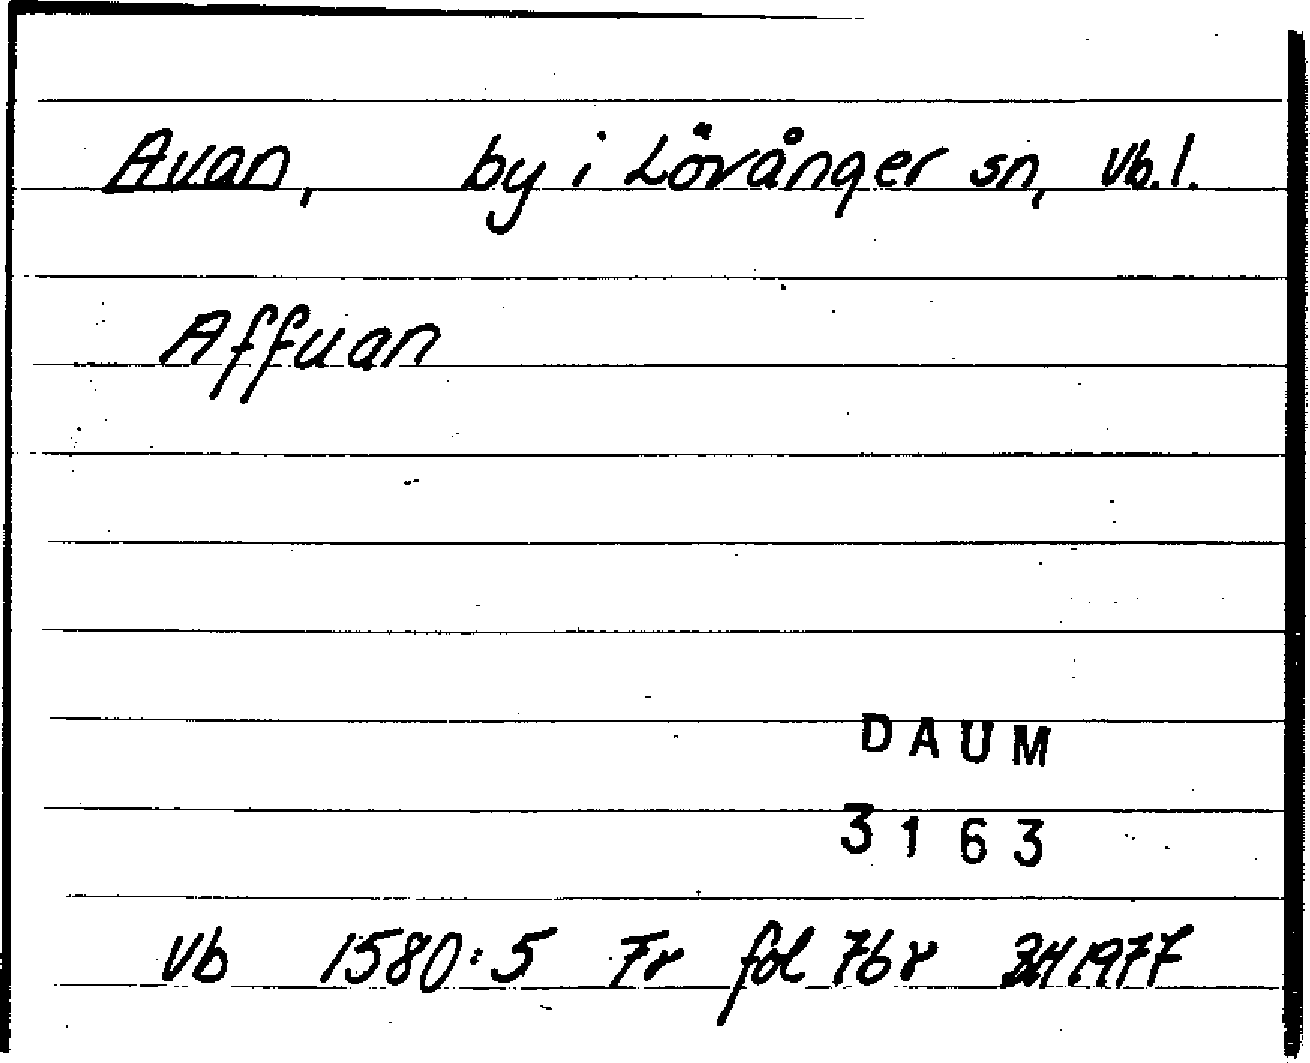 Avan, by i Lövånger sn, Vb.l.
Affuan
DAUM
3163
Vb 1580:5 Tr fol 76r 1977